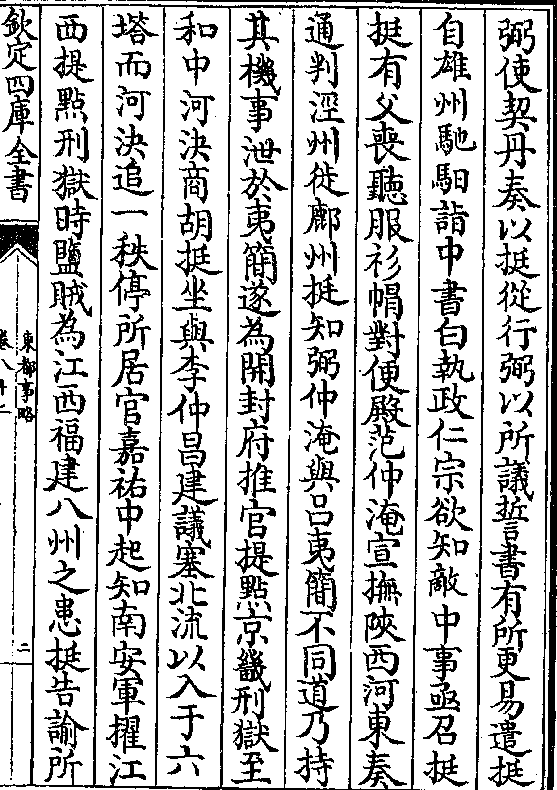 弼使契丹奏以挺從行弼以所議誓書有所更易遣挺
自雄州馳馹詣中書白執政仁宗欲知敵中事亟召挺
挺有父喪聽服衫帽對便殿范仲淹宣撫陜西河東奏
通判涇州徙鄜州挺知弼仲淹與吕夷簡不同道乃持
其機事泄於夷簡遂為開封府推官提㸃京畿刑獄至
和中河決商胡挺坐與李仲昌建議塞北流以入于六
塔而河決追一秩停所居官嘉祐中起知南安軍擢江
西提㸃刑獄時鹽賊為江西福建八州之患挺告諭所
欽定四庫全書
東都事略
卷八十二
二